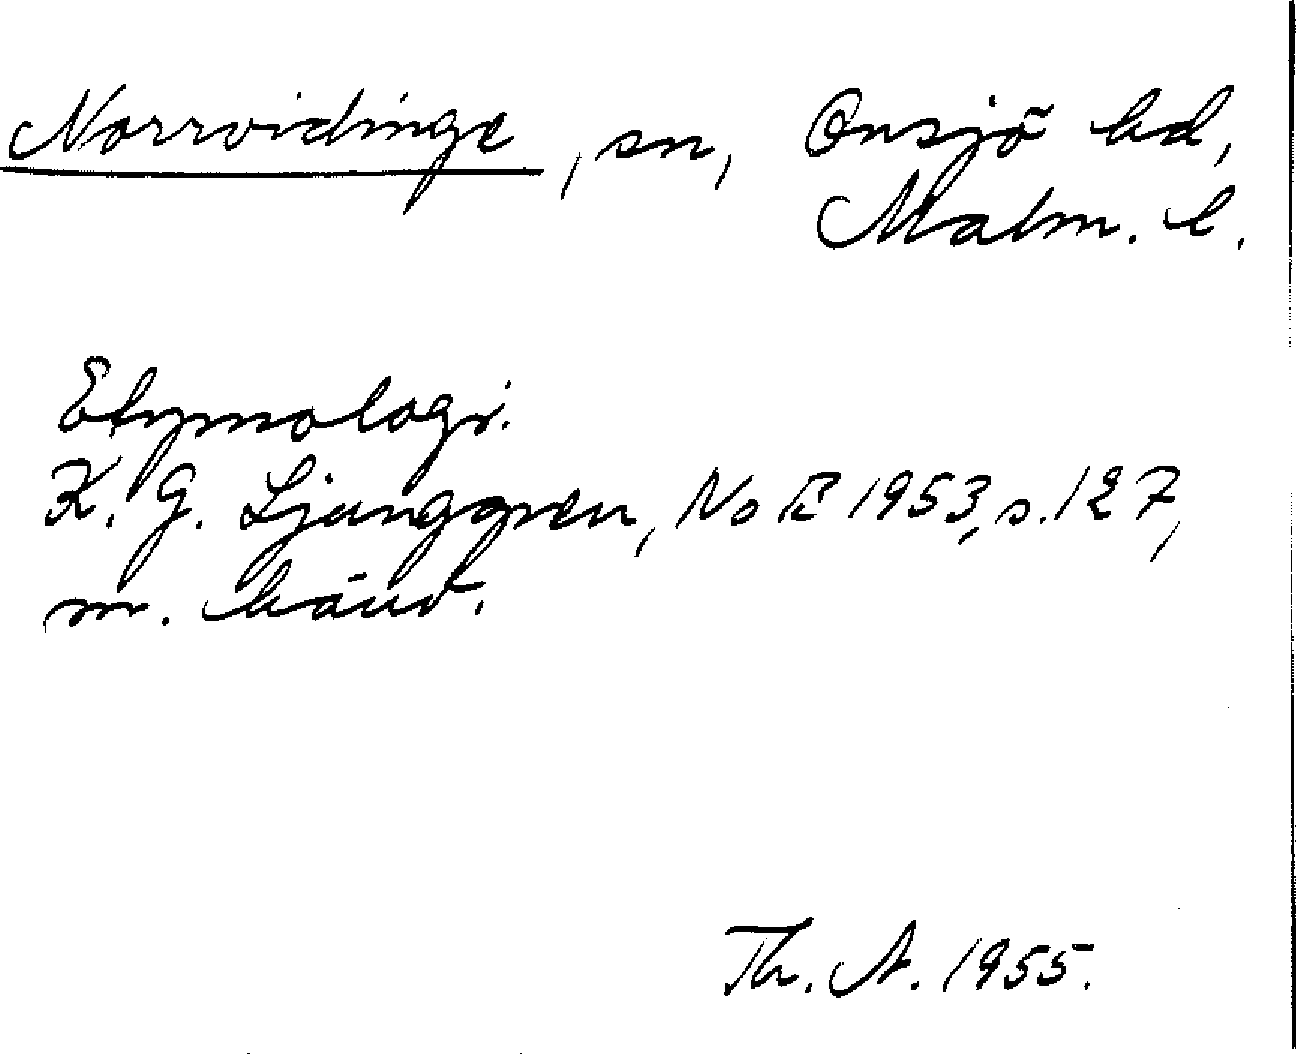 Norrvidinge, sn, Onsjö hd,
Malm. l.
Etymologi.
K. G. Ljunggren, NoB 1953, s. 127,
m. hänv.
Th. A. 1955.